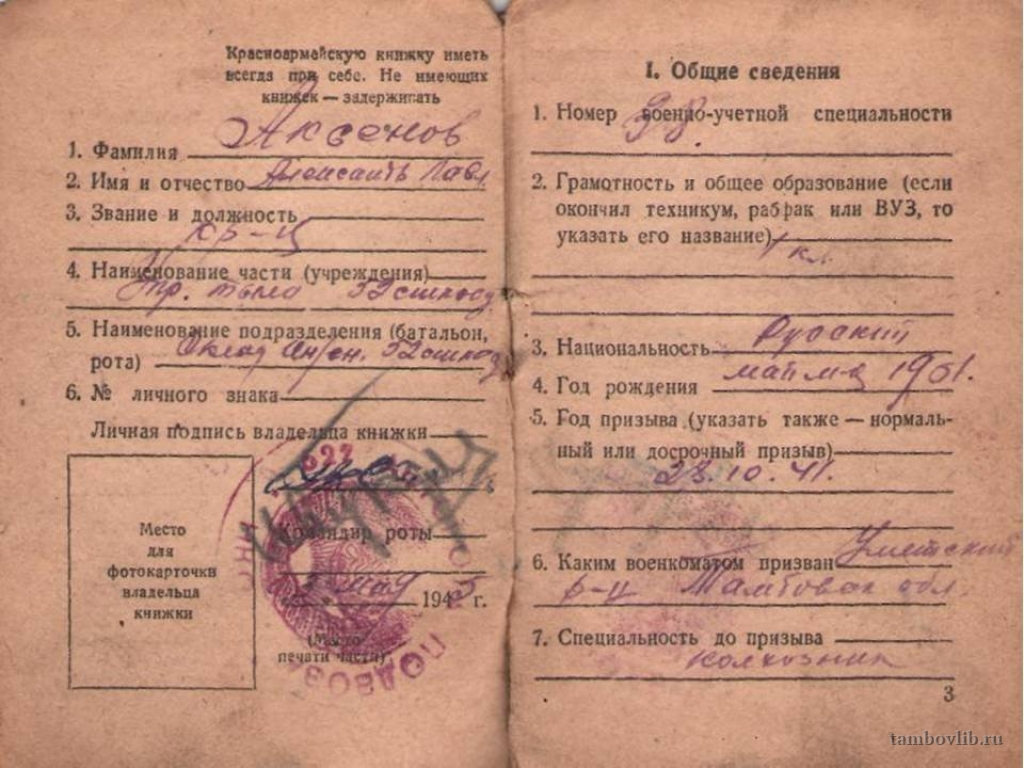 Красноармейскую книжку иметь
всегда при себе. Не имеющих
книжек — задерживать
1. Фамилия Аксенов
2. Имя и отчество
3. Звание и должность
кр-ц
4. Наименование части (учреждения)
Упр. тыла 52
5. Наименование подразделения (батальон,
рота) 52
6. № личного знака
Личная подпись владельца книжки
Место
для
фотокарточки
владельца
книжки
Командир роты
мая 1945 г.
(Место
печати части)
I. Общие сведения
1. Номер военно-учетной специальности
2. Грамотность и общее образование (если
окончил техникум, рабфак или ВУЗ, то
указать его название)
1 кл.
3. Национальность Русский
4. Год рождения 1901.
5. Год призыва (указать также — нормаль-
ный или досрочный призыв)
23.10.41.
6. Каким военкоматом призван Уметский
р-н Тамбовск обл.
7. Специальность до призыва
колхозник
3
tambovlib.ru